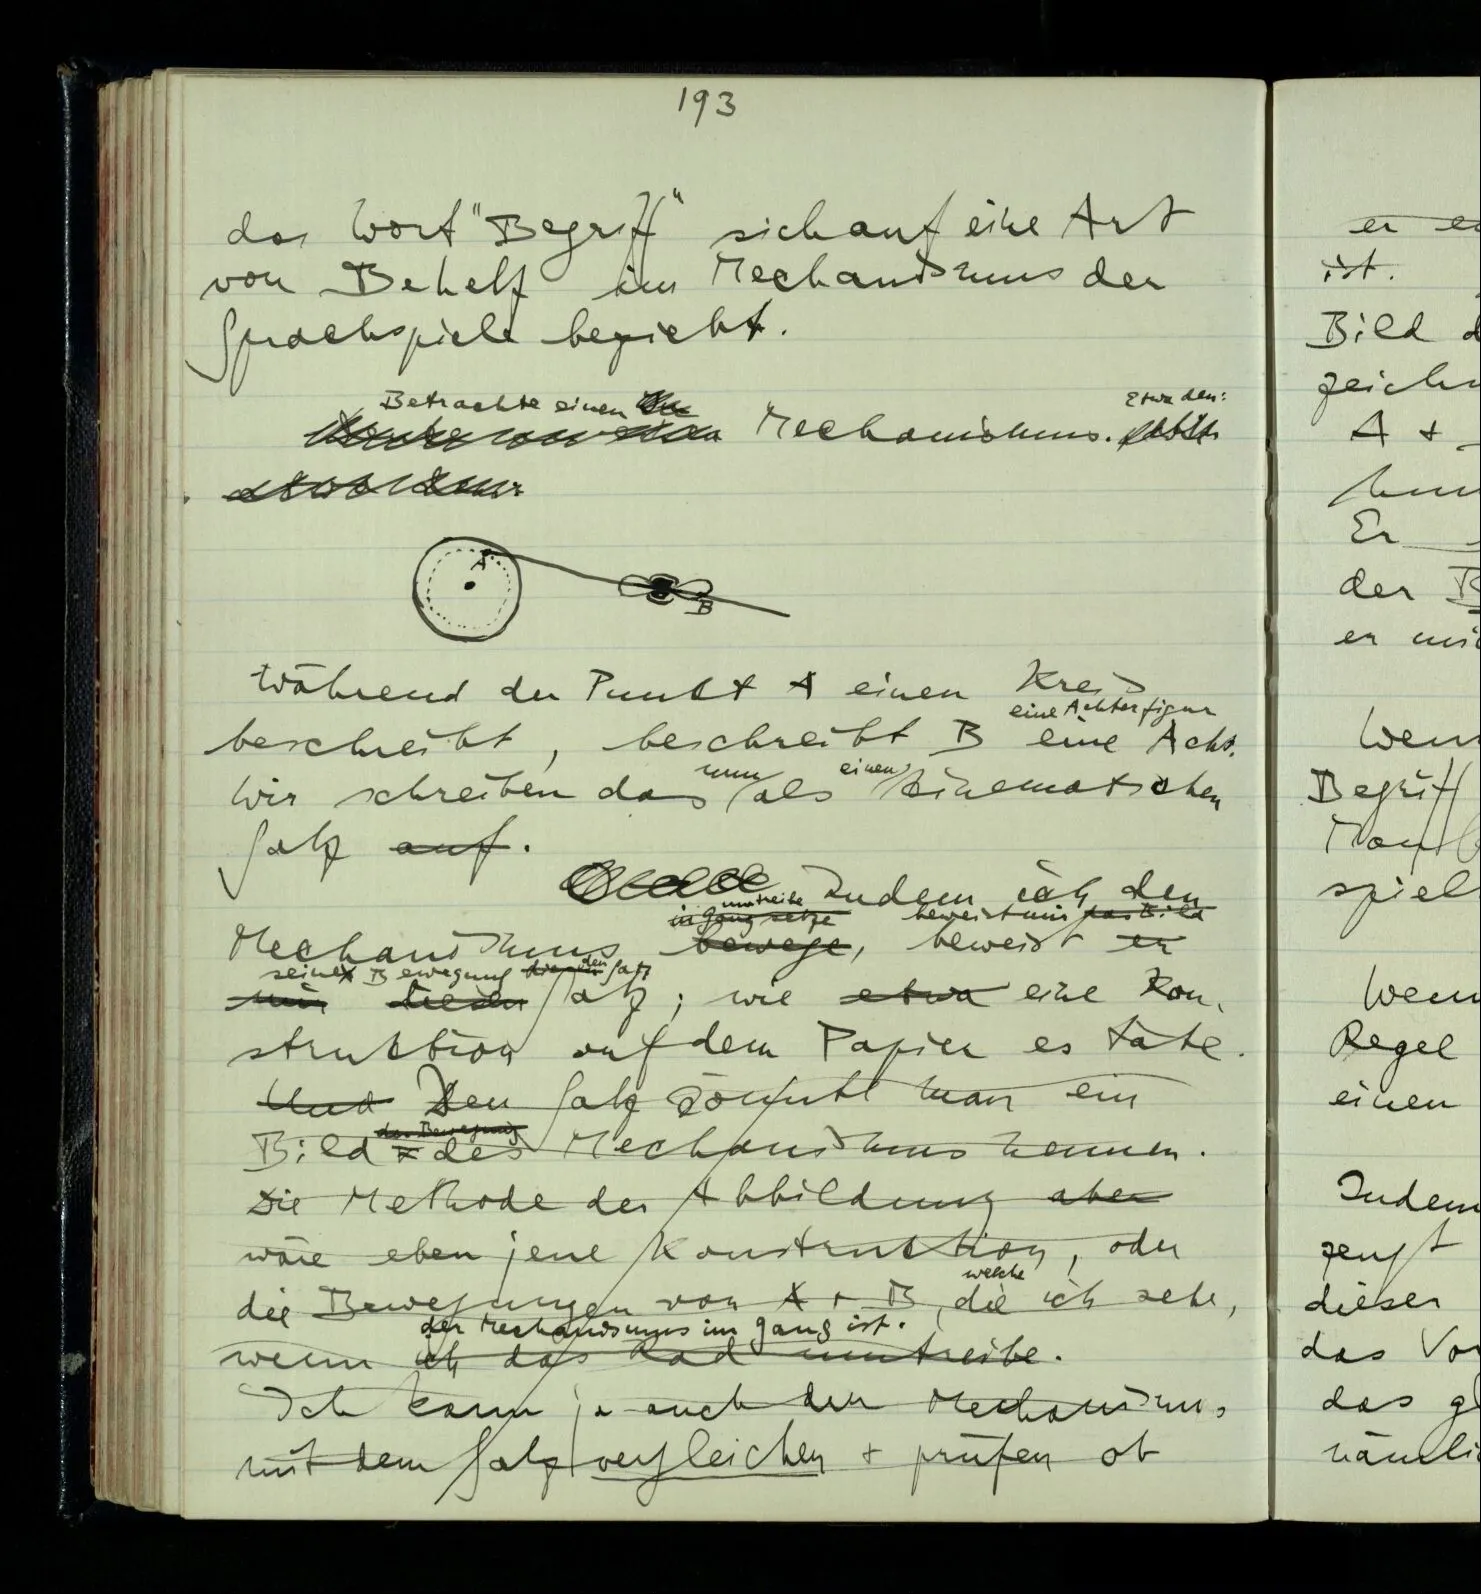 193
das Wort "Begriff" sich auf eine Art
von Behelf im Mechanismus der
Sprachspiele bezieht.
Betrachte einen
Etwa den:
Mechanismus.
A
B
Während der Punkt A einen Kreis
eine Achterfigur
beschreibt, beschreibt B eine Acht.
nun einen
Wir schreiben das als kinematischen
Satz auf.
Indem ich den
umtreibe
in Gang setze beweist mir das Bild
Mechanismus bewege, beweist er
seine Bewegung den Satz
mir diesen Satz; wie etwa eine Kon-
struktion auf dem Papier es täte.
Und Den Satz könnte man ein
der Bewegung
Bild des Mechanismus nennen.
Die Methode der Abbildung aber
wäre eben jene Konstruktion, oder
welche
die Bewegungen von A + B, die ich sehe,
der Mechanismus im Gang ist.
wenn ich das Rad umtreibe.
Ich kann ja auch den Mechanismus
mit dem Satz vergleichen + prüfen ob
er
ist.
Bild
zeichn
A +
Er
der B
er
Wenn
Begriff
spiel
Wenn
Regel
einen
Indem
zeugt
dieser
das Vor
das gl
nämli